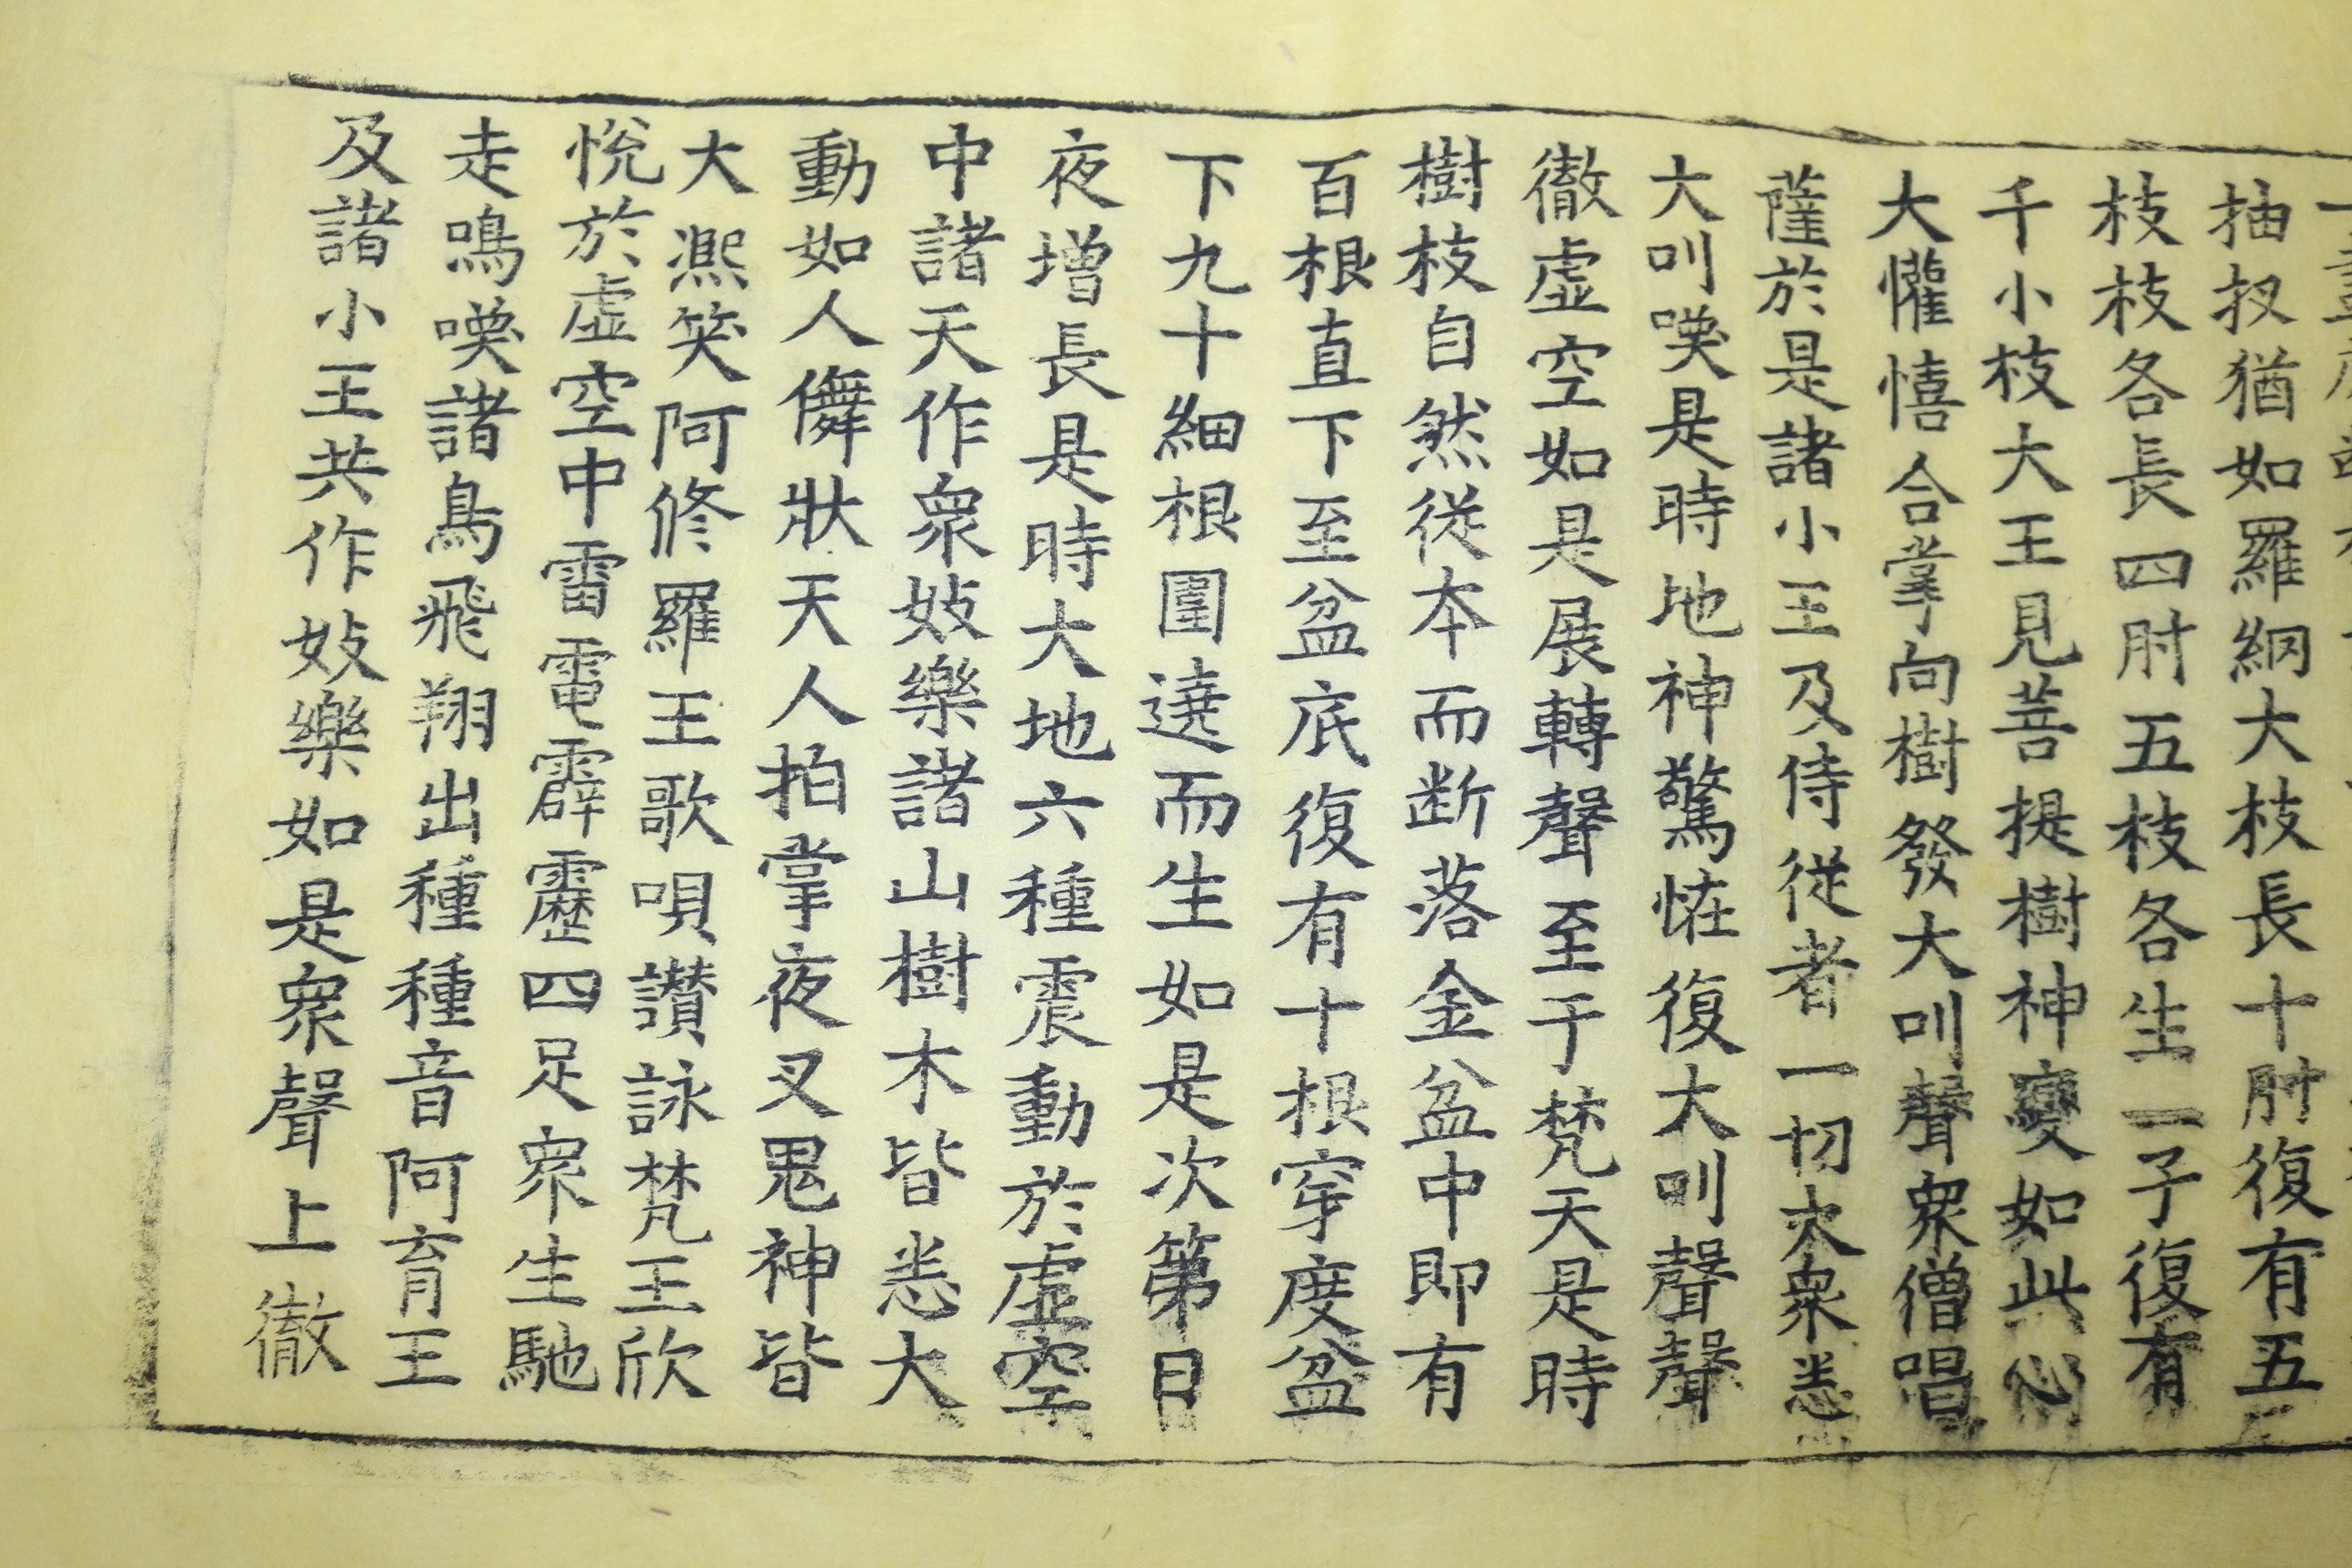 抽杈猶如羅網大枝長十肘復有五
枝枝各長四肘五枝各生一子復有
千小枝大王見菩提樹神變如此心
大懽憘合掌向樹發大叫聲衆僧唱
薩於是諸小王及侍從者一切大衆悉
大叫嘆是時地神驚恠復大叫聲聲
徹虛空如是展轉聲至于梵天是時
樹枝自然從本而断落金盆盆中即有
百根直下至盆底復有十根穿度盆
下九十細根圍遶而生如是次第日
夜增長是時大地六種震動於虛空
中諸天作衆妓樂諸山樹木皆悉大
動如人儛狀天人拍掌夜叉鬼神皆
大凞笑阿修羅王歌唄讚詠梵王欣
悅於虛空中雷電霹靂四足衆生馳
走鳴嘆諸鳥飛翔出種種音阿育王
及諸小王共作妓樂如是衆聲上徹